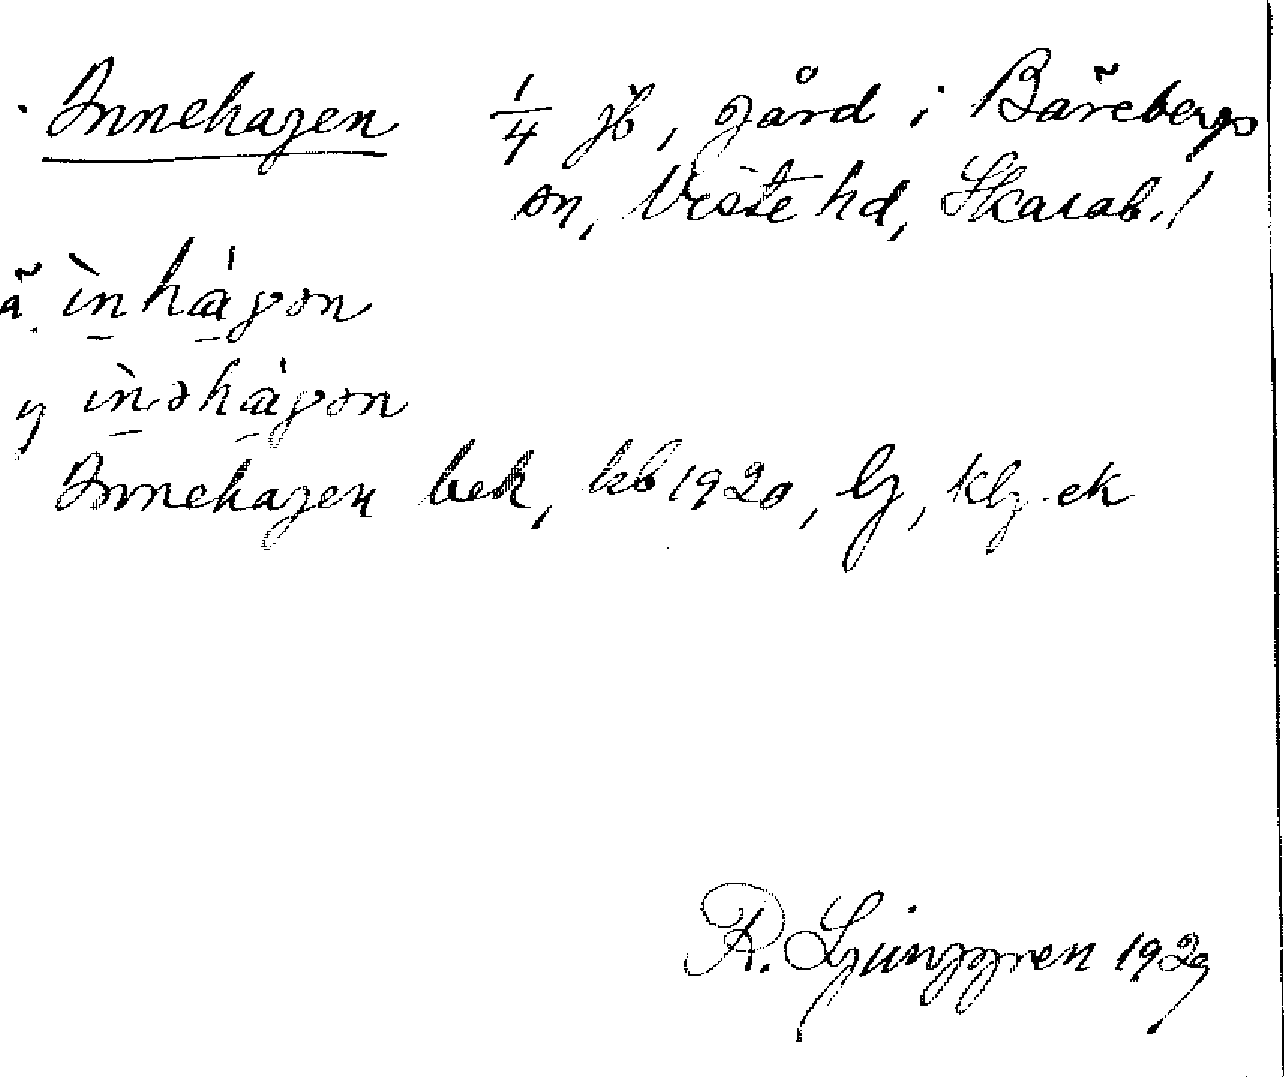 Innehagen 1/4 jb, gård i Bärebergs
sn, Viste hd, Skarab. l
ä. ìnhágən
y ìnəhágən
Innehagen bek, kb 1920, lj, klj. ek
R. Ljunggren 1929